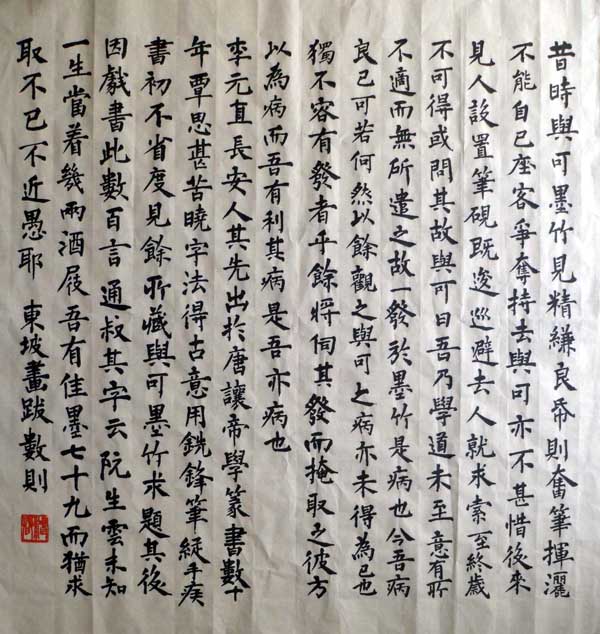 昔時與可墨竹見精縑良帋則奮筆揮灑
不能自已座客爭奪持去與可亦不甚惜後來
見人設置筆硯既逡巡避去人就求索至終歲
不可得或問其故與可曰吾乃學道未至意有所
不適而無所遣之故一發於墨竹是病也今吾病
良已可若何然以餘觀之與可之病亦未得為已也
獨不容有發者乎餘將伺其發而掩取之彼方
以為病而吾有利其病是吾亦病也
李元直長安人其先出於唐讓帝學篆書數十
年覃思甚苦曉字法得古意用銑鋒筆縱手疾
書初不省度見餘所藏與可墨竹求題其後
因戲書此數百言通叔其字云阮生雲未知
一生當着幾兩酒屐吾有佳墨七十九而猶求
取不已不近愚耶 東坡畫跋數則